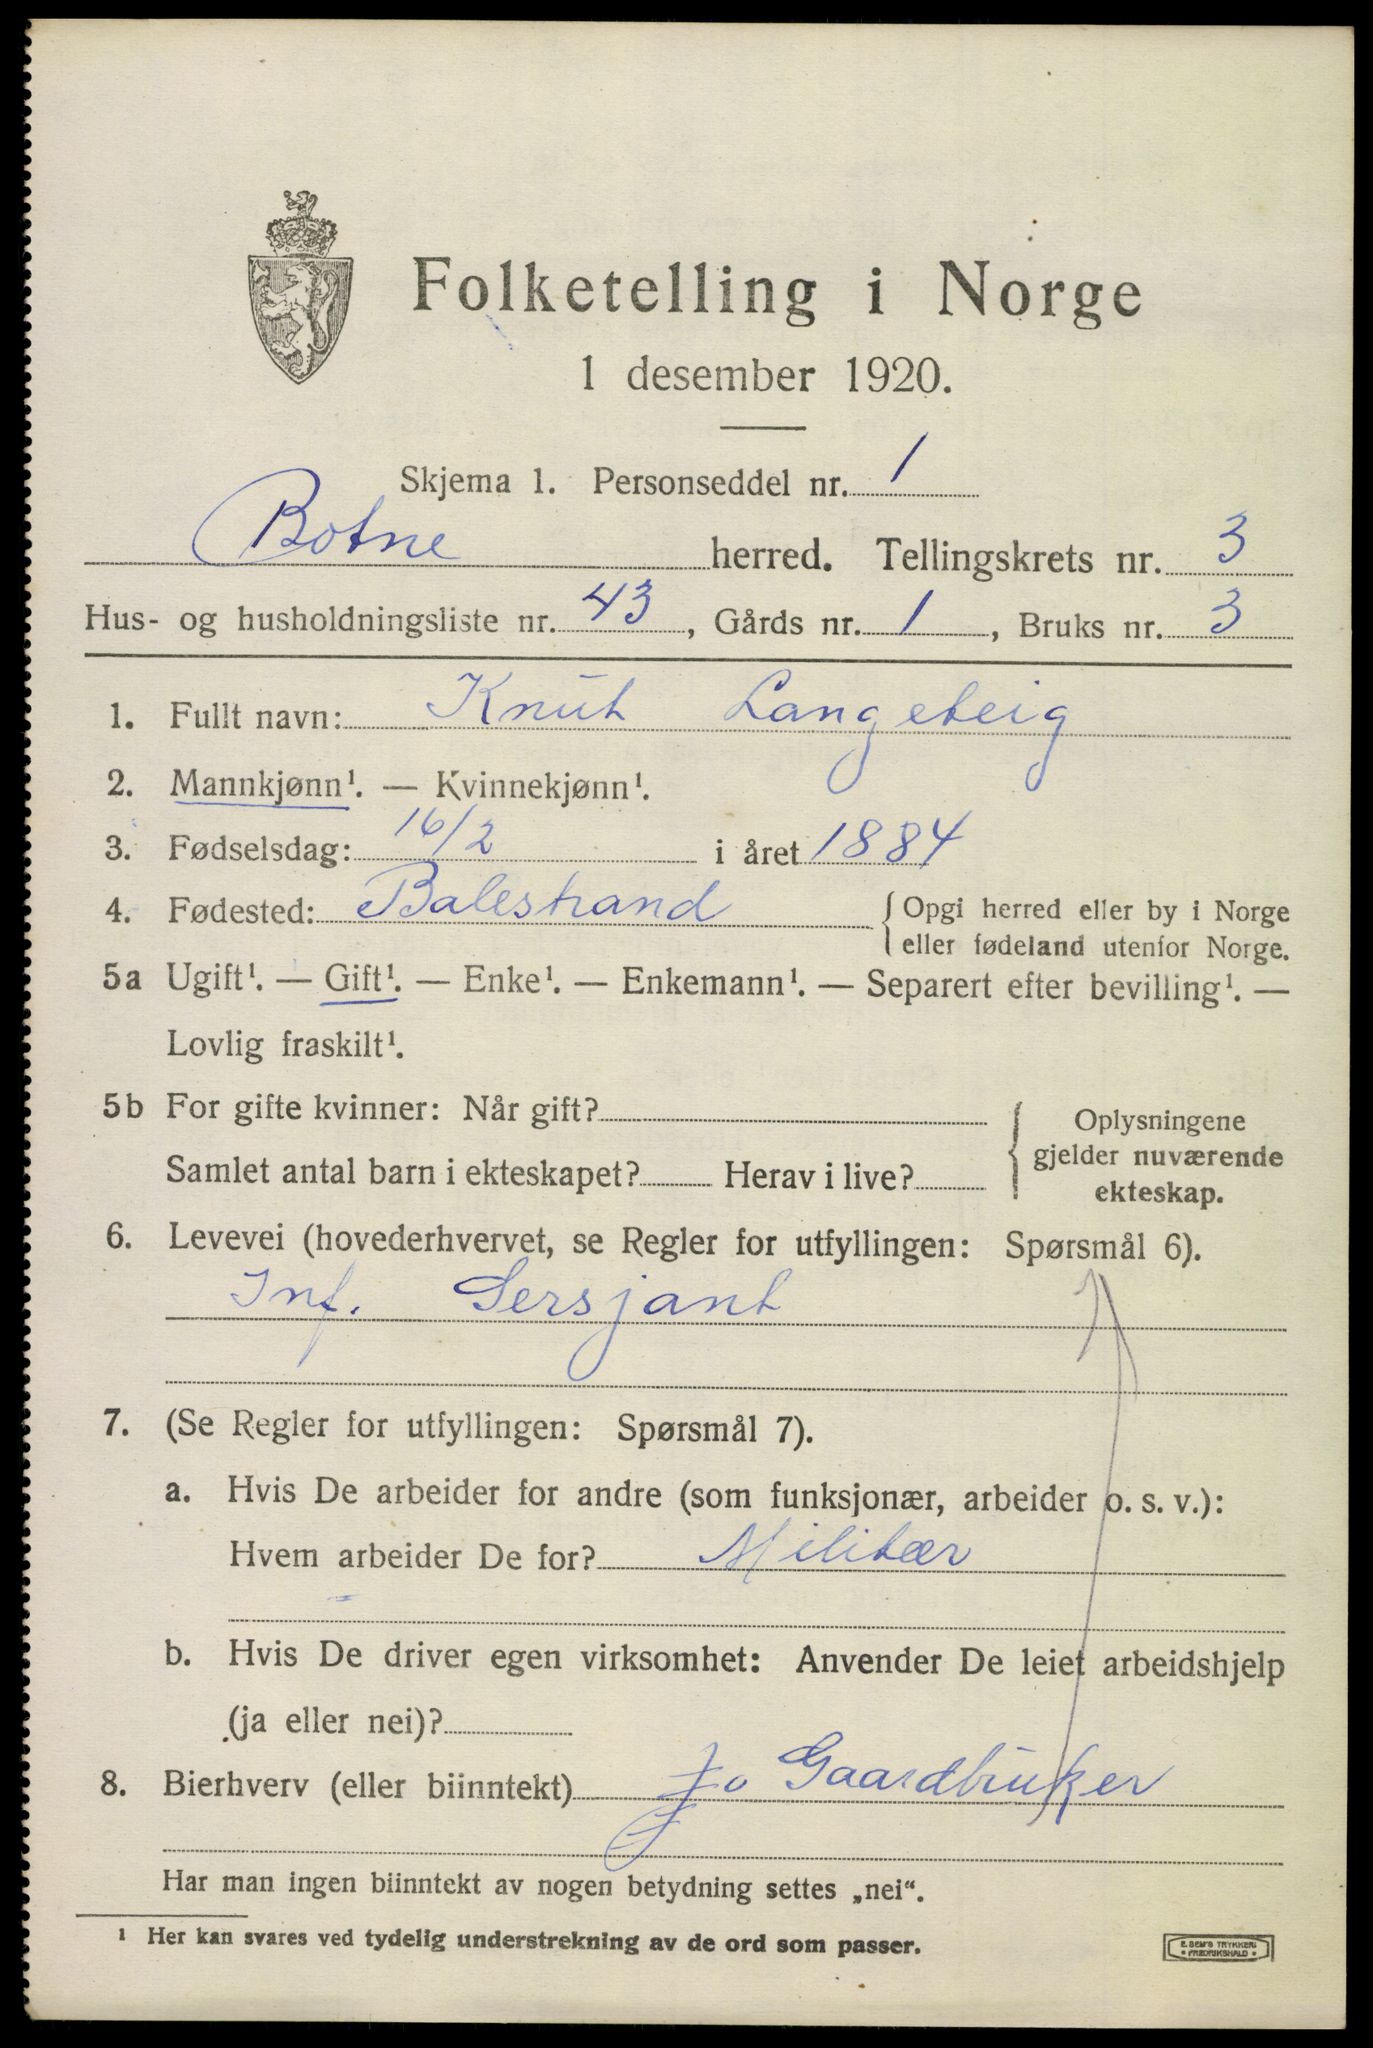 Folketelling i Norge
1 desember 1920.
Skjema 1. Personseddel nr. 1
Botne herred. Tellingskrets nr. 3
Hus- og husholdningsliste nr. 43, Gårds nr. 1, Bruks nr. 3
1. Fullt navn: Knut Langeteig
2. Mannkjønn¹. — Kvinnekjønn¹.
3. Fødselsdag: 16/2 i året 1884
4. Fødested: Balestrand { Opgi herred eller by i Norge
eller fødeland utenfor Norge.
5a Ugift¹. — Gift¹. — Enke¹. — Enkemann¹. — Separert efter bevilling¹. —
Lovlig fraskilt¹.
5b For gifte kvinner: Når gift? { Oplysningene
gjelder nuværende
Samlet antal barn i ekteskapet? Herav i live?
ekteskap.
6. Levevei (hovederhvervet, se Regler for utfyllingen: Spørsmål 6).
Inf. Sersjant
7. (Se Regler for utfyllingen: Spørsmål 7).
a. Hvis De arbeider for andre (som funksjonær, arbeider o. s. v.):
Hvem arbeider De for? Militær
b. Hvis De driver egen virksomhet: Anvender De leiet arbeidshjelp
(ja eller nei)?
8. Bierhverv (eller biinntekt) Gaardbruker
Har man ingen biinntekt av nogen betydning settes „nei“.
¹ Her kan svares ved tydelig understrekning av de ord som passer.
E. SEM'S TRYKKERI
• FREDRIKSHALD •